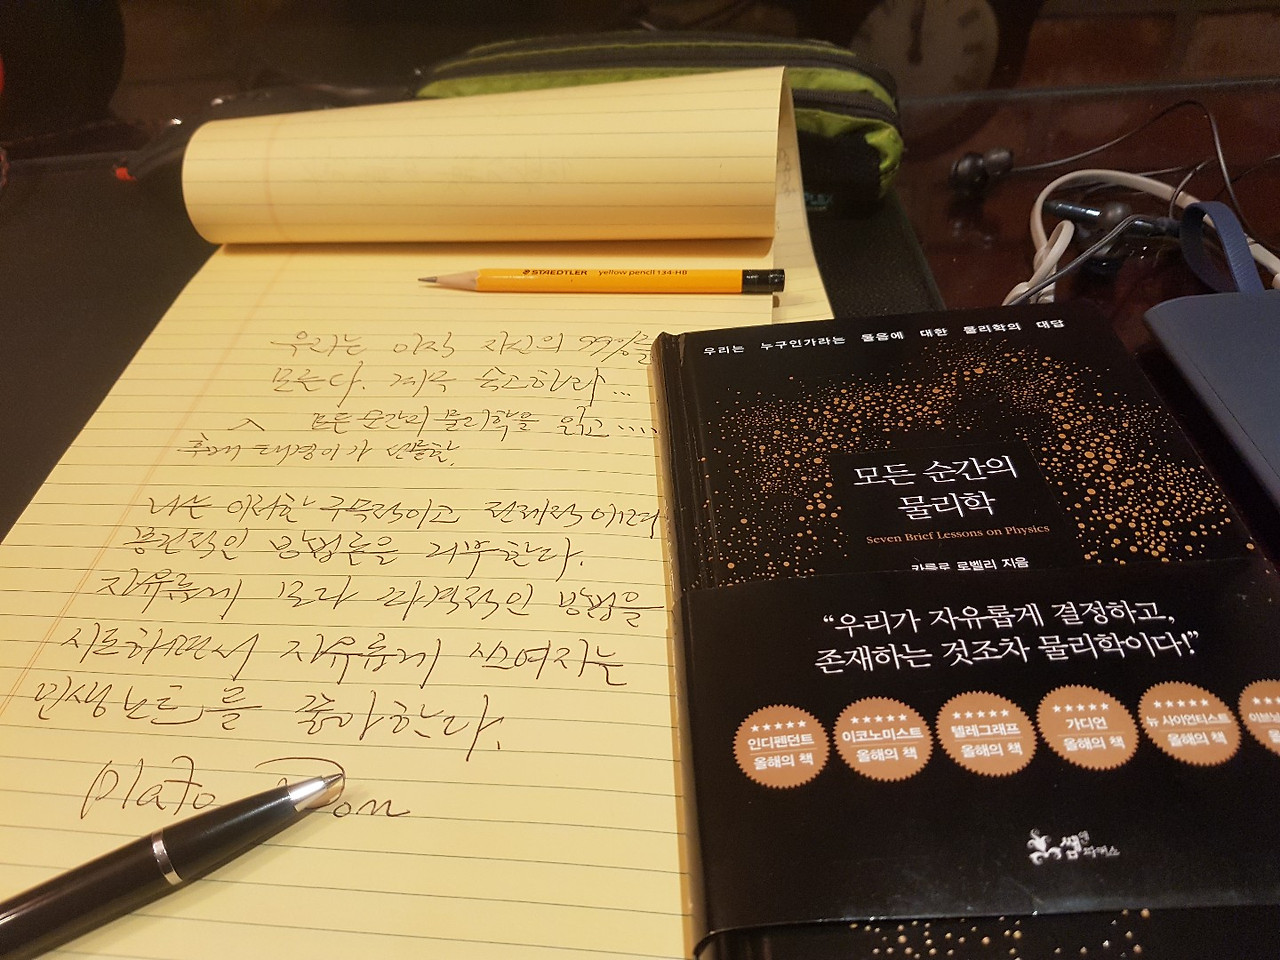 STAEDTLER yellow pencil 134-HB
우리는 아직 자신의 99%를
모른다. 계속 숙고하라...
모든 순간의 물리학을 읽고.....
후배 태경이가 선물한.
나는 이러한 규목적이고 전체적이며
권적인 방법론을 거부한다.
자유롭게 보다 파격적인 방법을
시도하면서 자유롭게 쓰여지는
인생노트를 좋아한다.
Plato Don
우리는 누구인가라는 물음에 대한 물리학의 대답
모든 순간의
물리학
Seven Brief Lessons on Physics
카를로 로벨리 지음
“우리가 자유롭게 결정하고,
존재하는 것조차 물리학이다!”
인디펜던트
올해의 책
이코노미스트
올해의 책
텔레그래프
올해의 책
가디언
올해의 책
뉴 사이언티스트
올해의 책
쌤앤파커스